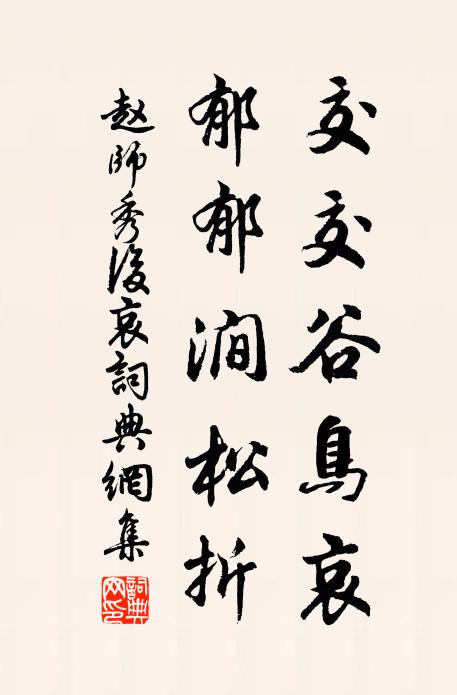 交交谷鳥哀
郁郁澗松折
赵師秀後哀詞典網集
詞典網印